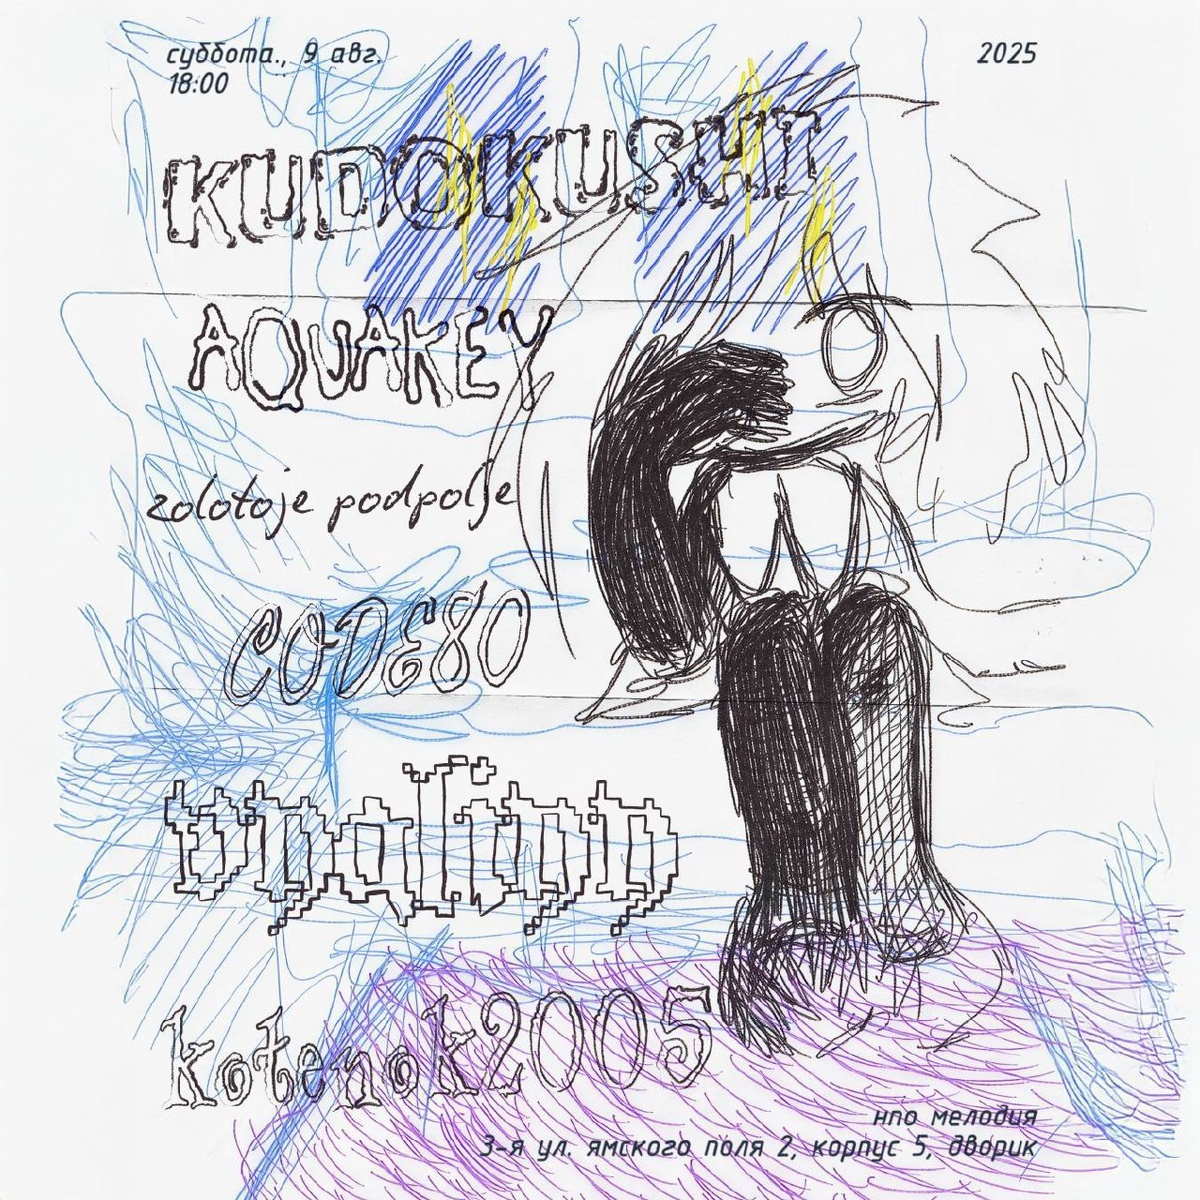 суббота., 9 авг.
18:00
2025
KUDOKUSHI
AQUAKEY
zolotoje podpolje
CODE80
kotenok2005
нпо мелодия
3-я ул. ямского поля 2, корпус 5, дворик